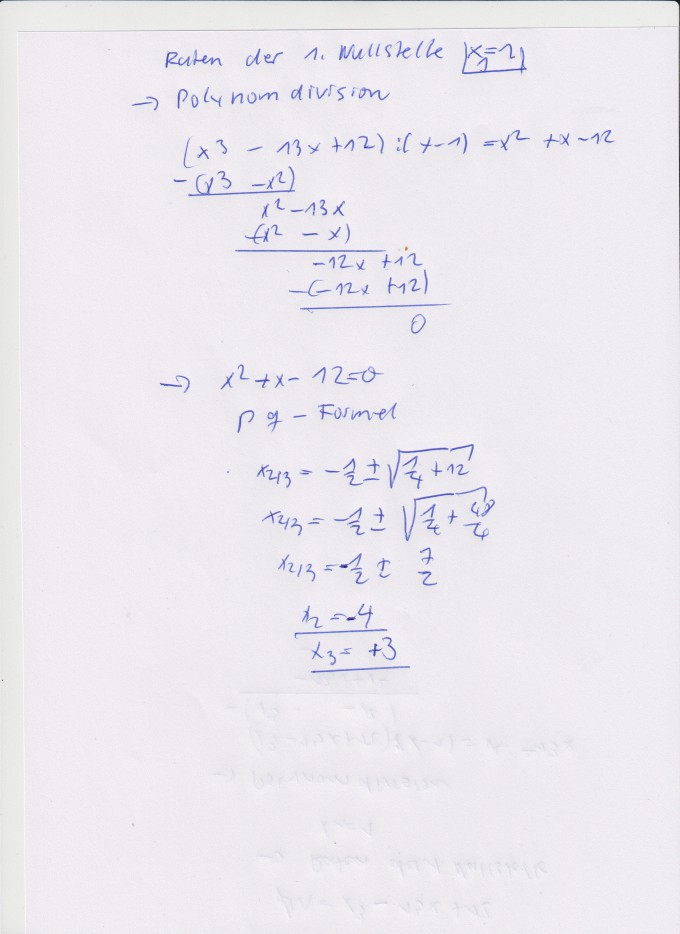 Raten der 1. Nullstelle x₁=1
→ Polynomdivision
(x3 - 13x+12):(x-1) = x² +x-12
-(x3 -x²)
x²-13x
-(x² - x)
-12x +12
-(-12x +12)
0
→ x²+x- 12=0
pq - Formel
x2/3 = -1/2 ± √(1/4 + 12)
x2/3 = -1/2 ± √(1/4 + 48/4)
x2/3 = -1/2 ± 7/2
x2 = -4
x3 = +3